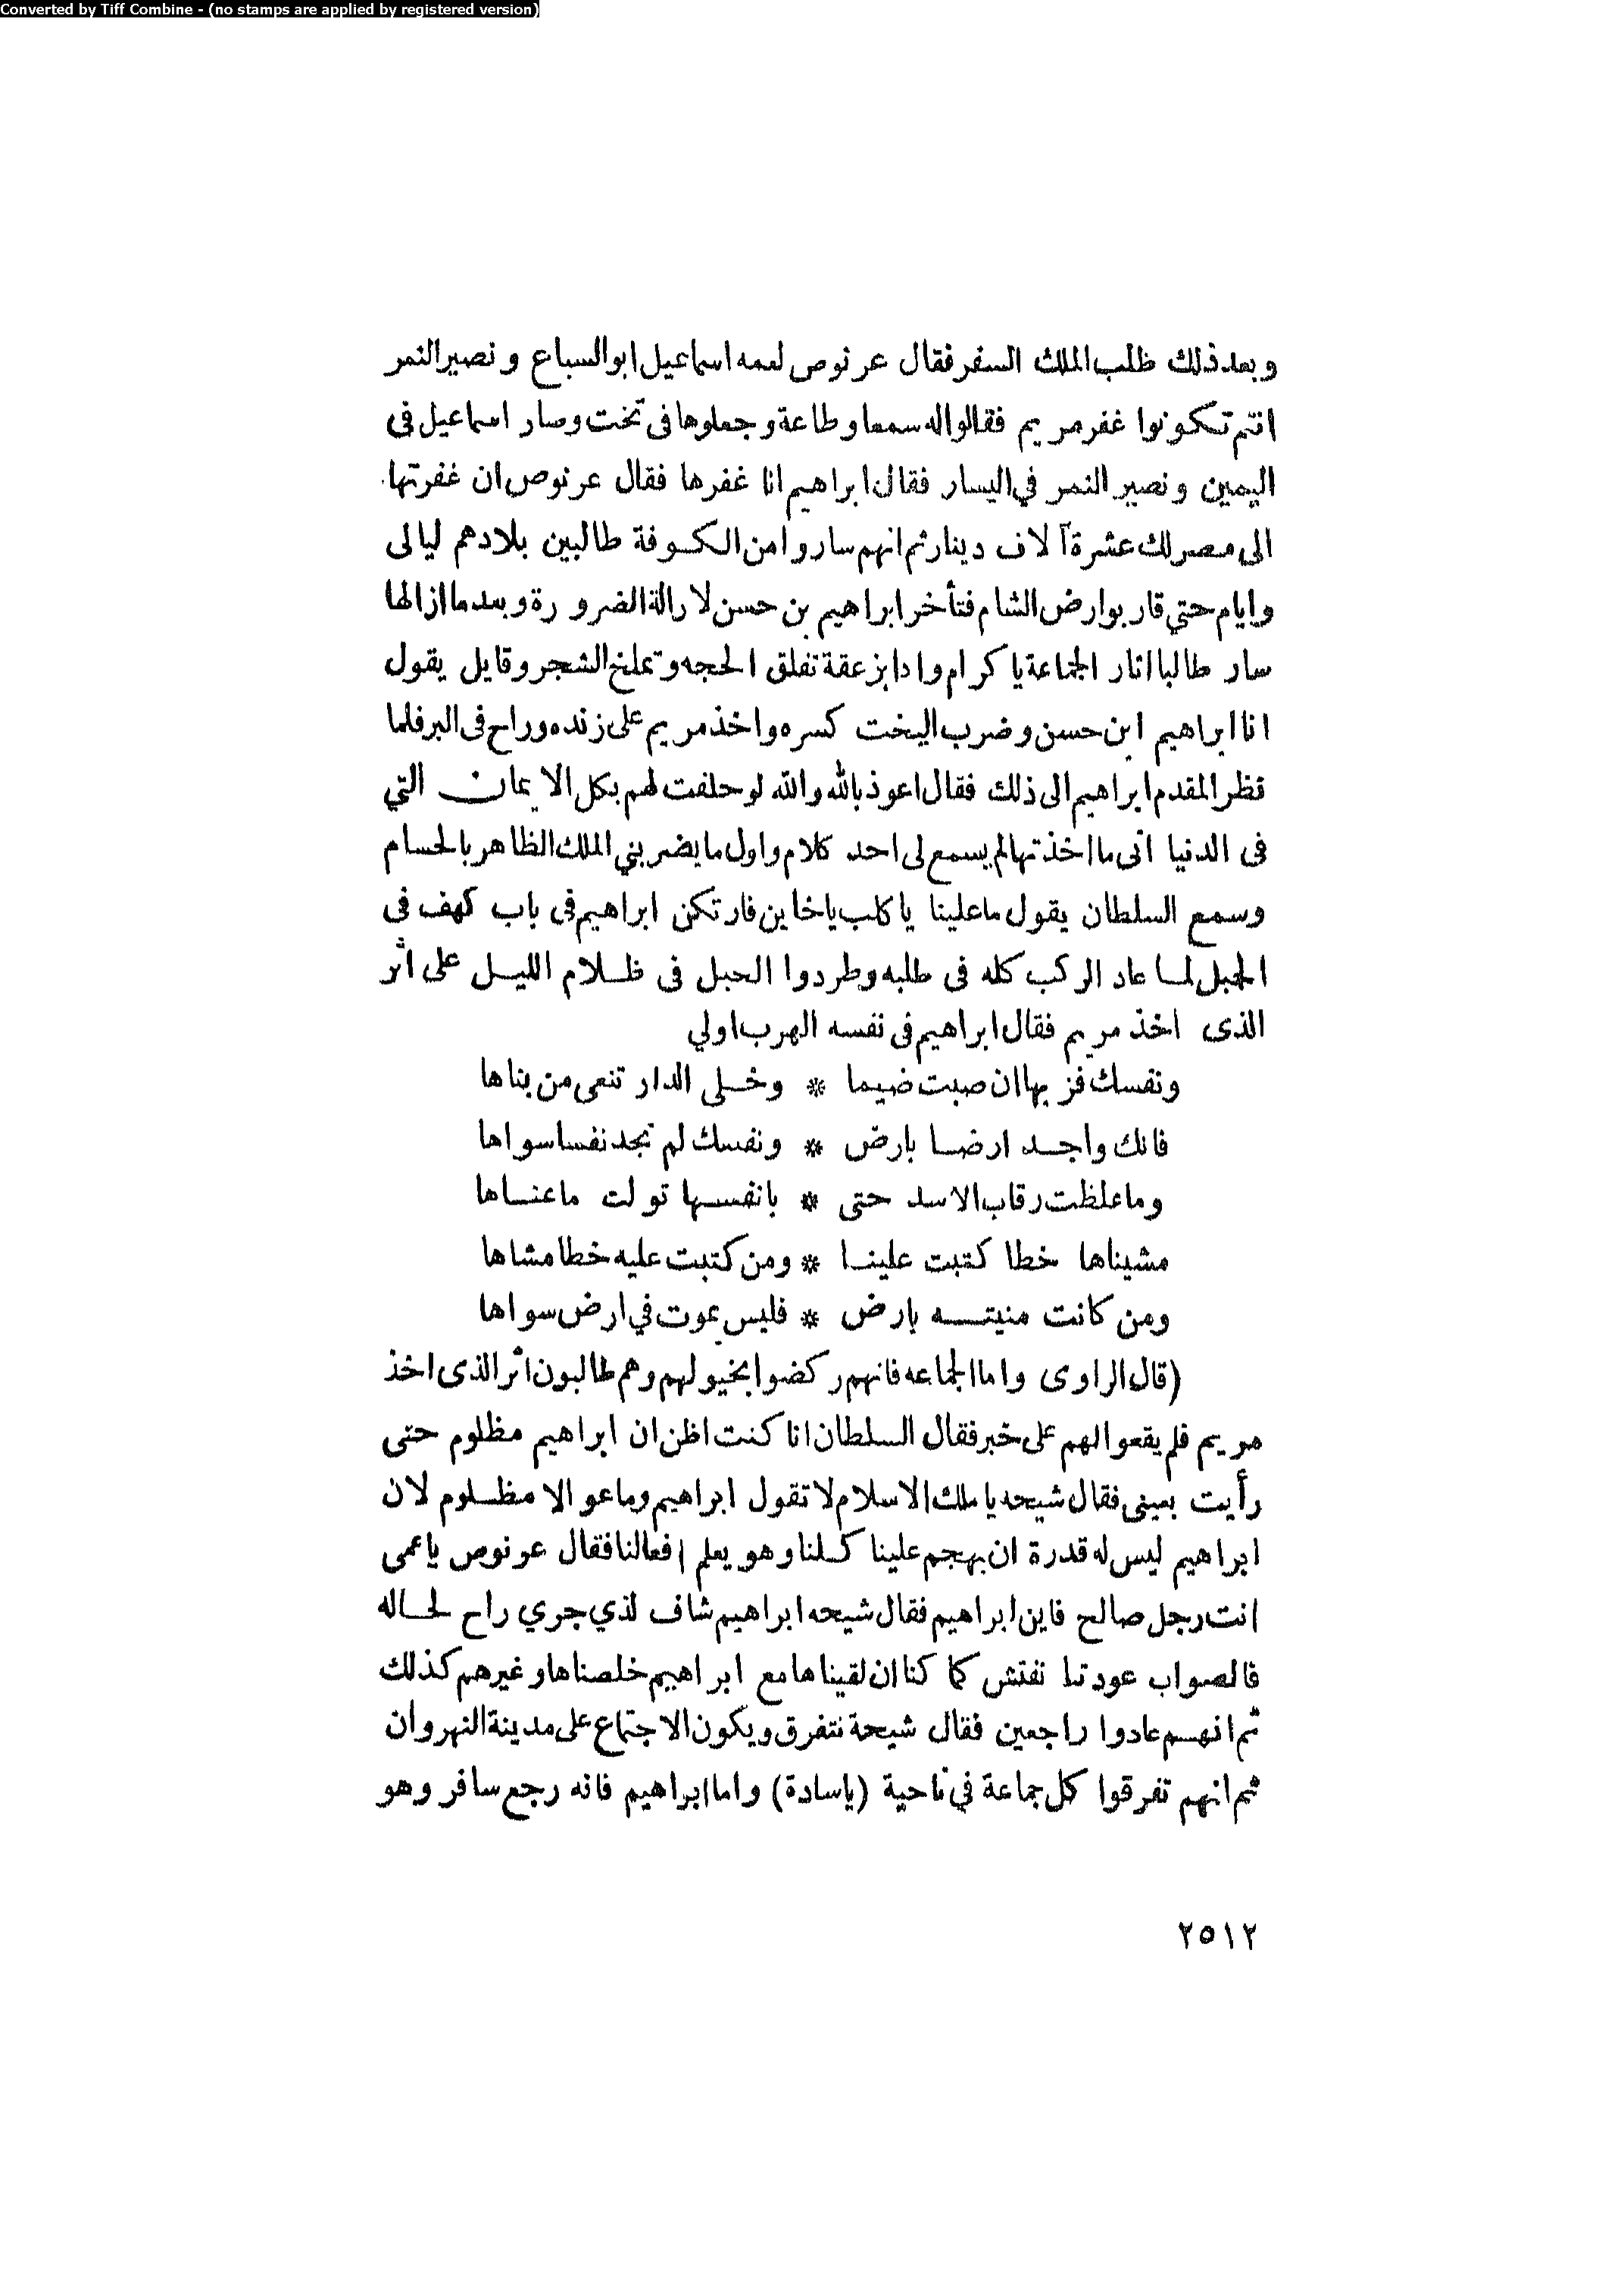 Converted by Tiff Combine - (no stamps are applied by registered version)
وبعد ذلك طلب الملك السفر فقال عرنوص لعمه اسماعيل ابو السباع ونصير النمر
انتم تكونوا غفر مريم فقالوا له سمعا وطاعة وجعلوها فى تخت وصار اسماعيل فى
اليمين ونصير النمر في اليسار فقال ابراهيم انا غفرها فقال عرنوص ان غفرتها
الى مصر لك عشرة آلاف دينار ثم انهم ساروا من الكوفة طالبين بلادهم ليالى
وايام حتي قاربوا ارض الشام فتأخر ابراهيم بن حسن لارالة الضرورة وبعد ما ازالها
سار طالبا اثار الجماعة ياكرام وادا بزعقة تفلق الحجه وتملخ الشجر وقايل يقول
انا ابراهيم ابن حسن وضرب اليخت كسره واخذ مريم على زنده وراح فى البر فلما
نظر المقدم ابراهيم الى ذلك فقال اعوذ بالله والله لو حلفت لهم بكل الايمان التي
فى الدنيا انى ما اخذتها لم يسمع لى احد كلام واول ما يضربني الملك الظاهر بالحسام
وسمع السلطان يقول ما علينا ياكلب ياخاين فارتكن ابراهيم فى باب كهف فى
الجبل لما عاد الركب كله فى طلبه وطردوا الحبل فى ظلام الليل على اثر
الذى اخذ مريم فقال ابراهيم فى نفسه الهرب اولي
ونفسك فز بها ان صبت ضيما * وخلى الدار تنعى من بناها
فانك واجد ارضا بارض * ونفسك لم تجد نفسا سواها
وما علظت رقاب الاسد حتى * بانفسها تولت ما عناها
مشيناها خطا كتبت علينا * ومن كتبت عليه خطا مشاها
ومن كانت منيته بارض * فليس يموت في ارض سواها
(قال الراوى واما الجماعه فانهم ركضوا بخيولهم وهم طالبون اثر الذى اخذ
مريم فلم يقعوا لهم على خبر فقال السلطان انا كنت اظن ان ابراهيم مظلوم حتى
رأيت بعينى فقال شيحه ياملك الاسلام لا تقول ابراهيم وما عو الا مظلوم لان
ابراهيم ليس له قدرة ان يهجم علينا كلنا وهو يعلم افعالنا فقال عرنوص ياعمى
انت رجل صالح فاين ابراهيم فقال شيحه ابراهيم شاف لذي جري راح لحاله
فالصواب عودتنا نفتش كما كنا ان لقيناها مع ابراهيم خلصناها وغيرهم كذلك
ثم انهم عادوا راجعين فقال شيحة نتفرق ويكون الاجتماع على مدينة النهروان
ثم انهم تفرقوا كل جماعة في ناحية (ياسادة) واما ابراهيم فانه رجع سافر وهو
٢٥١٢